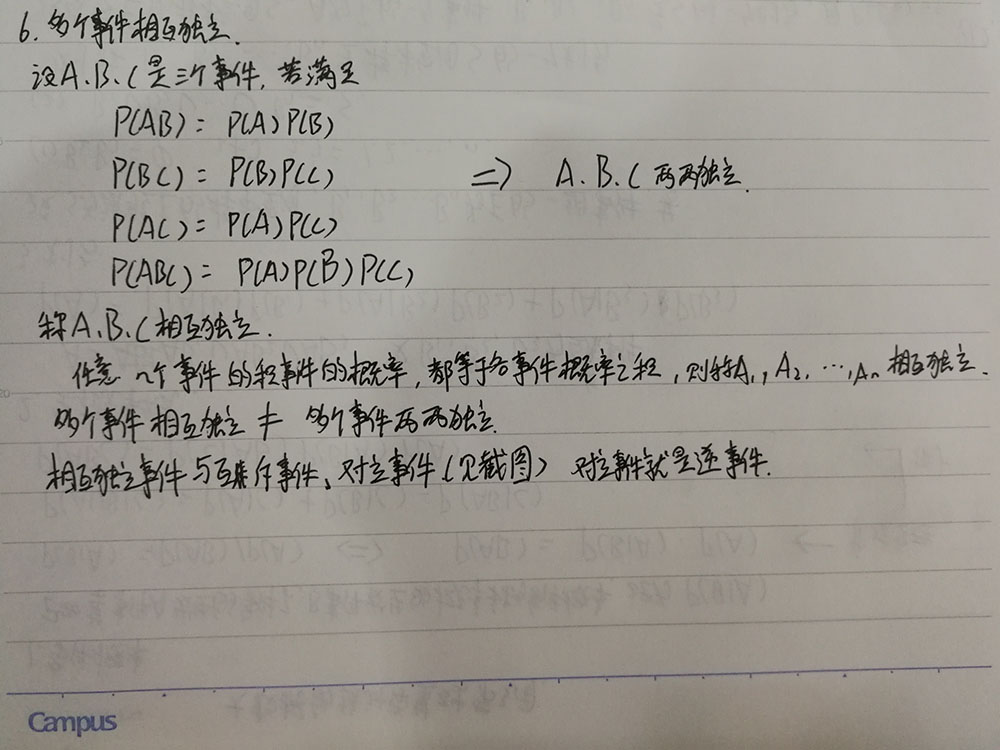 6. 多个事件相互独立.
设A.B.C是三个事件, 若满足
P(AB) = P(A)P(B)
P(BC) = P(B)P(C) => A.B.C 两两独立.
P(AC) = P(A)P(C)
P(ABC) = P(A)P(B)P(C)
称A.B.C相互独立.
任意 n个事件的积事件的概率, 都等于各事件概率之积, 则称A₁, A₂, ⋯, Aₙ 相互独立.
多个事件相互独立 ≠ 多个事件两两独立.
相互独立事件与互斥事件、对立事件(见截图) 对立事件就是逆事件.
Campus